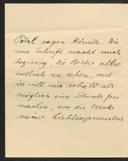 Viel sagen könnte, die
Schrift macht mich
begierig, die Bilder alle
endlich zu sehen, und
ich will mir sobald als
möglich eine Stunde frei
machen, um die Werke
meines Lieblingsmeisters